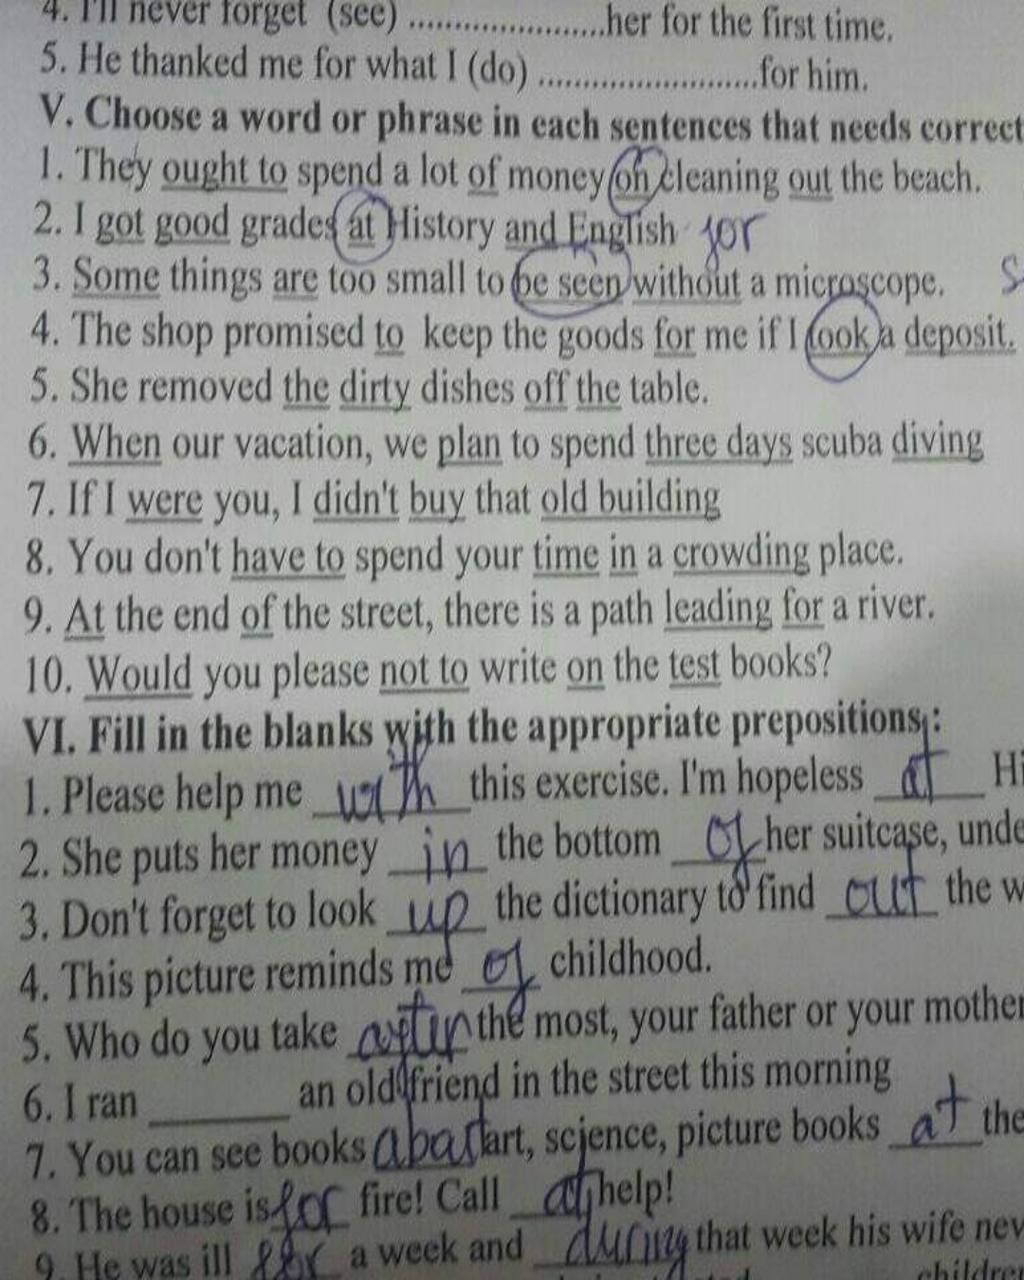 4. I'll never forget (see) ......................her for the first time.
5. He thanked me for what I (do) ........................for him.
V. Choose a word or phrase in each sentences that needs correct
1. They ought to spend a lot of money on cleaning out the beach.
2. I got good grades at History and English for
3. Some things are too small to be seen without a microscope.
4. The shop promised to keep the goods for me if I took a deposit.
5. She removed the dirty dishes off the table.
6. When our vacation, we plan to spend three days scuba diving
7. If I were you, I didn't buy that old building
8. You don't have to spend your time in a crowding place.
9. At the end of the street, there is a path leading for a river.
10. Would you please not to write on the test books?
VI. Fill in the blanks with the appropriate prepositions :
1. Please help me with this exercise. I'm hopeless at Hi
2. She puts her money in the bottom of her suitcase, unde
3. Don't forget to look up the dictionary to find out the w
4. This picture reminds me of childhood.
5. Who do you take after the most, your father or your mother
6. I ran ________ an old friend in the street this morning
7. You can see books art, science, picture books at the
8. The house is for fire! Call at help!
9. He was ill for a week and during that week his wife nev